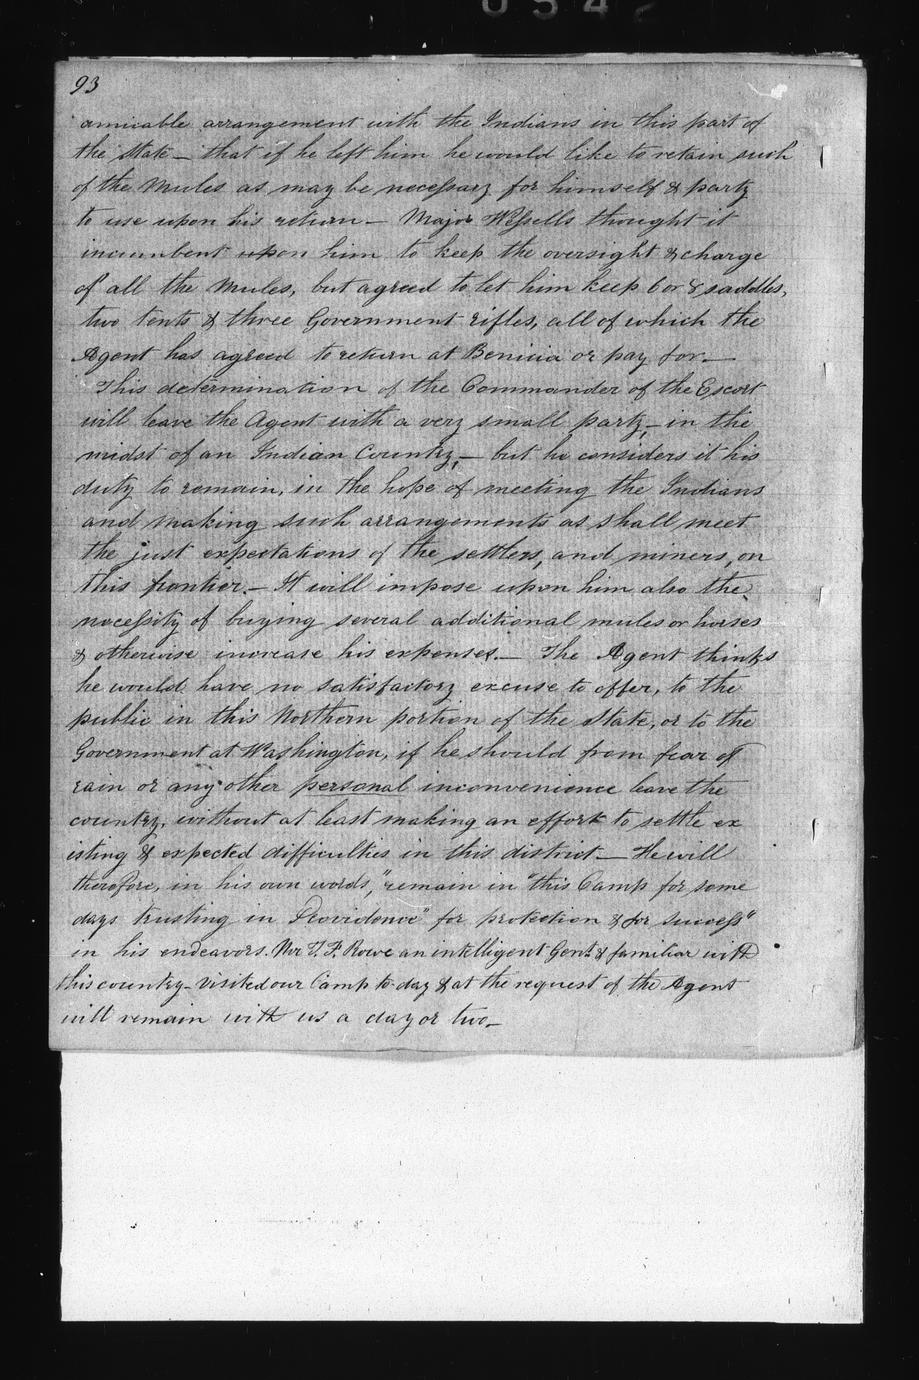 0542
93
amicable arrangement with the Indians in this part of
the State – that if he left him he would like to retain such
of the Mules as may be necessary for himself & party
to use upon his return – Major Wessells thought it
incumbent upon him to keep the oversight & charge
of all the Mules, but agreed to let him keep 6 or 8 saddles,
two tents & three Government rifles, all of which the
Agent has agreed to return at Benicia or pay for. –
This determination of the Commander of the Escort
will leave the Agent with a very small party, – in the
midst of an Indian Country, – but he considers it his
duty to remain, in the hope of meeting the Indians
and making such arrangements as shall meet
the just expectations of the settlers, and miners, on
this frontier. – It will impose upon him also the
necessity of buying several additional mules or horses
& otherwise increase his expenses. – The Agent thinks
he would have no satisfactory excuse to offer, to the
public in this Northern portion of the State, or to the
Government at Washington, if he should from fear of
rain or any other personal inconvenience leave the
country, without at least making an effort to settle ex
isting & expected difficulties in this district. – He will
therefore, in his own words, "remain in this Camp for some
days trusting in Providence" for protection & for success"
in his endeavors. Mr T. F. Rowe an intelligent Gent. & familiar with
this country – visited our Camp to-day & at the request of the Agent
will remain with us a day or two –